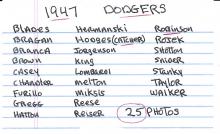 1947 DODGERS
BLADES Hermanski Robinson
BRAGAN Hodges (CATCHER) ROJEK
BRANCA Jorgenson Shotton
BROWN King SNIDER
CASEY Lombardi Stanky
CHANDLER melton TAYLOR
FURILLO miksis WALKER
GREGG Reese
HATTEN REISER 25 PHOTOS